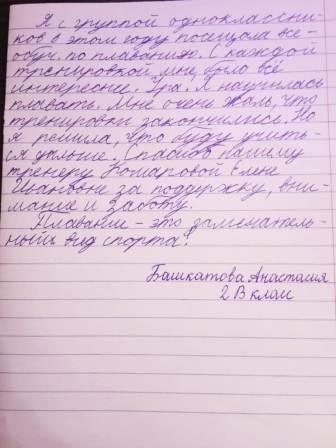 Я с группой одноклассни-
ков в этом году посещала все-
обуч по плаванию. С каждой
тренировкой мне было всё
интереснее. Ура. Я научилась
плавать. Мне очень жаль, что
тренировки закончились. Но
я решила, что буду учить-
ся дальше. Спасибо нашему
тренеру Комаровой Елене
Ивановне за поддержку, вни-
мание и заботу.
Плавание - это замечатель-
ный вид спорта!
Башкатова Анастасия
2 В класс